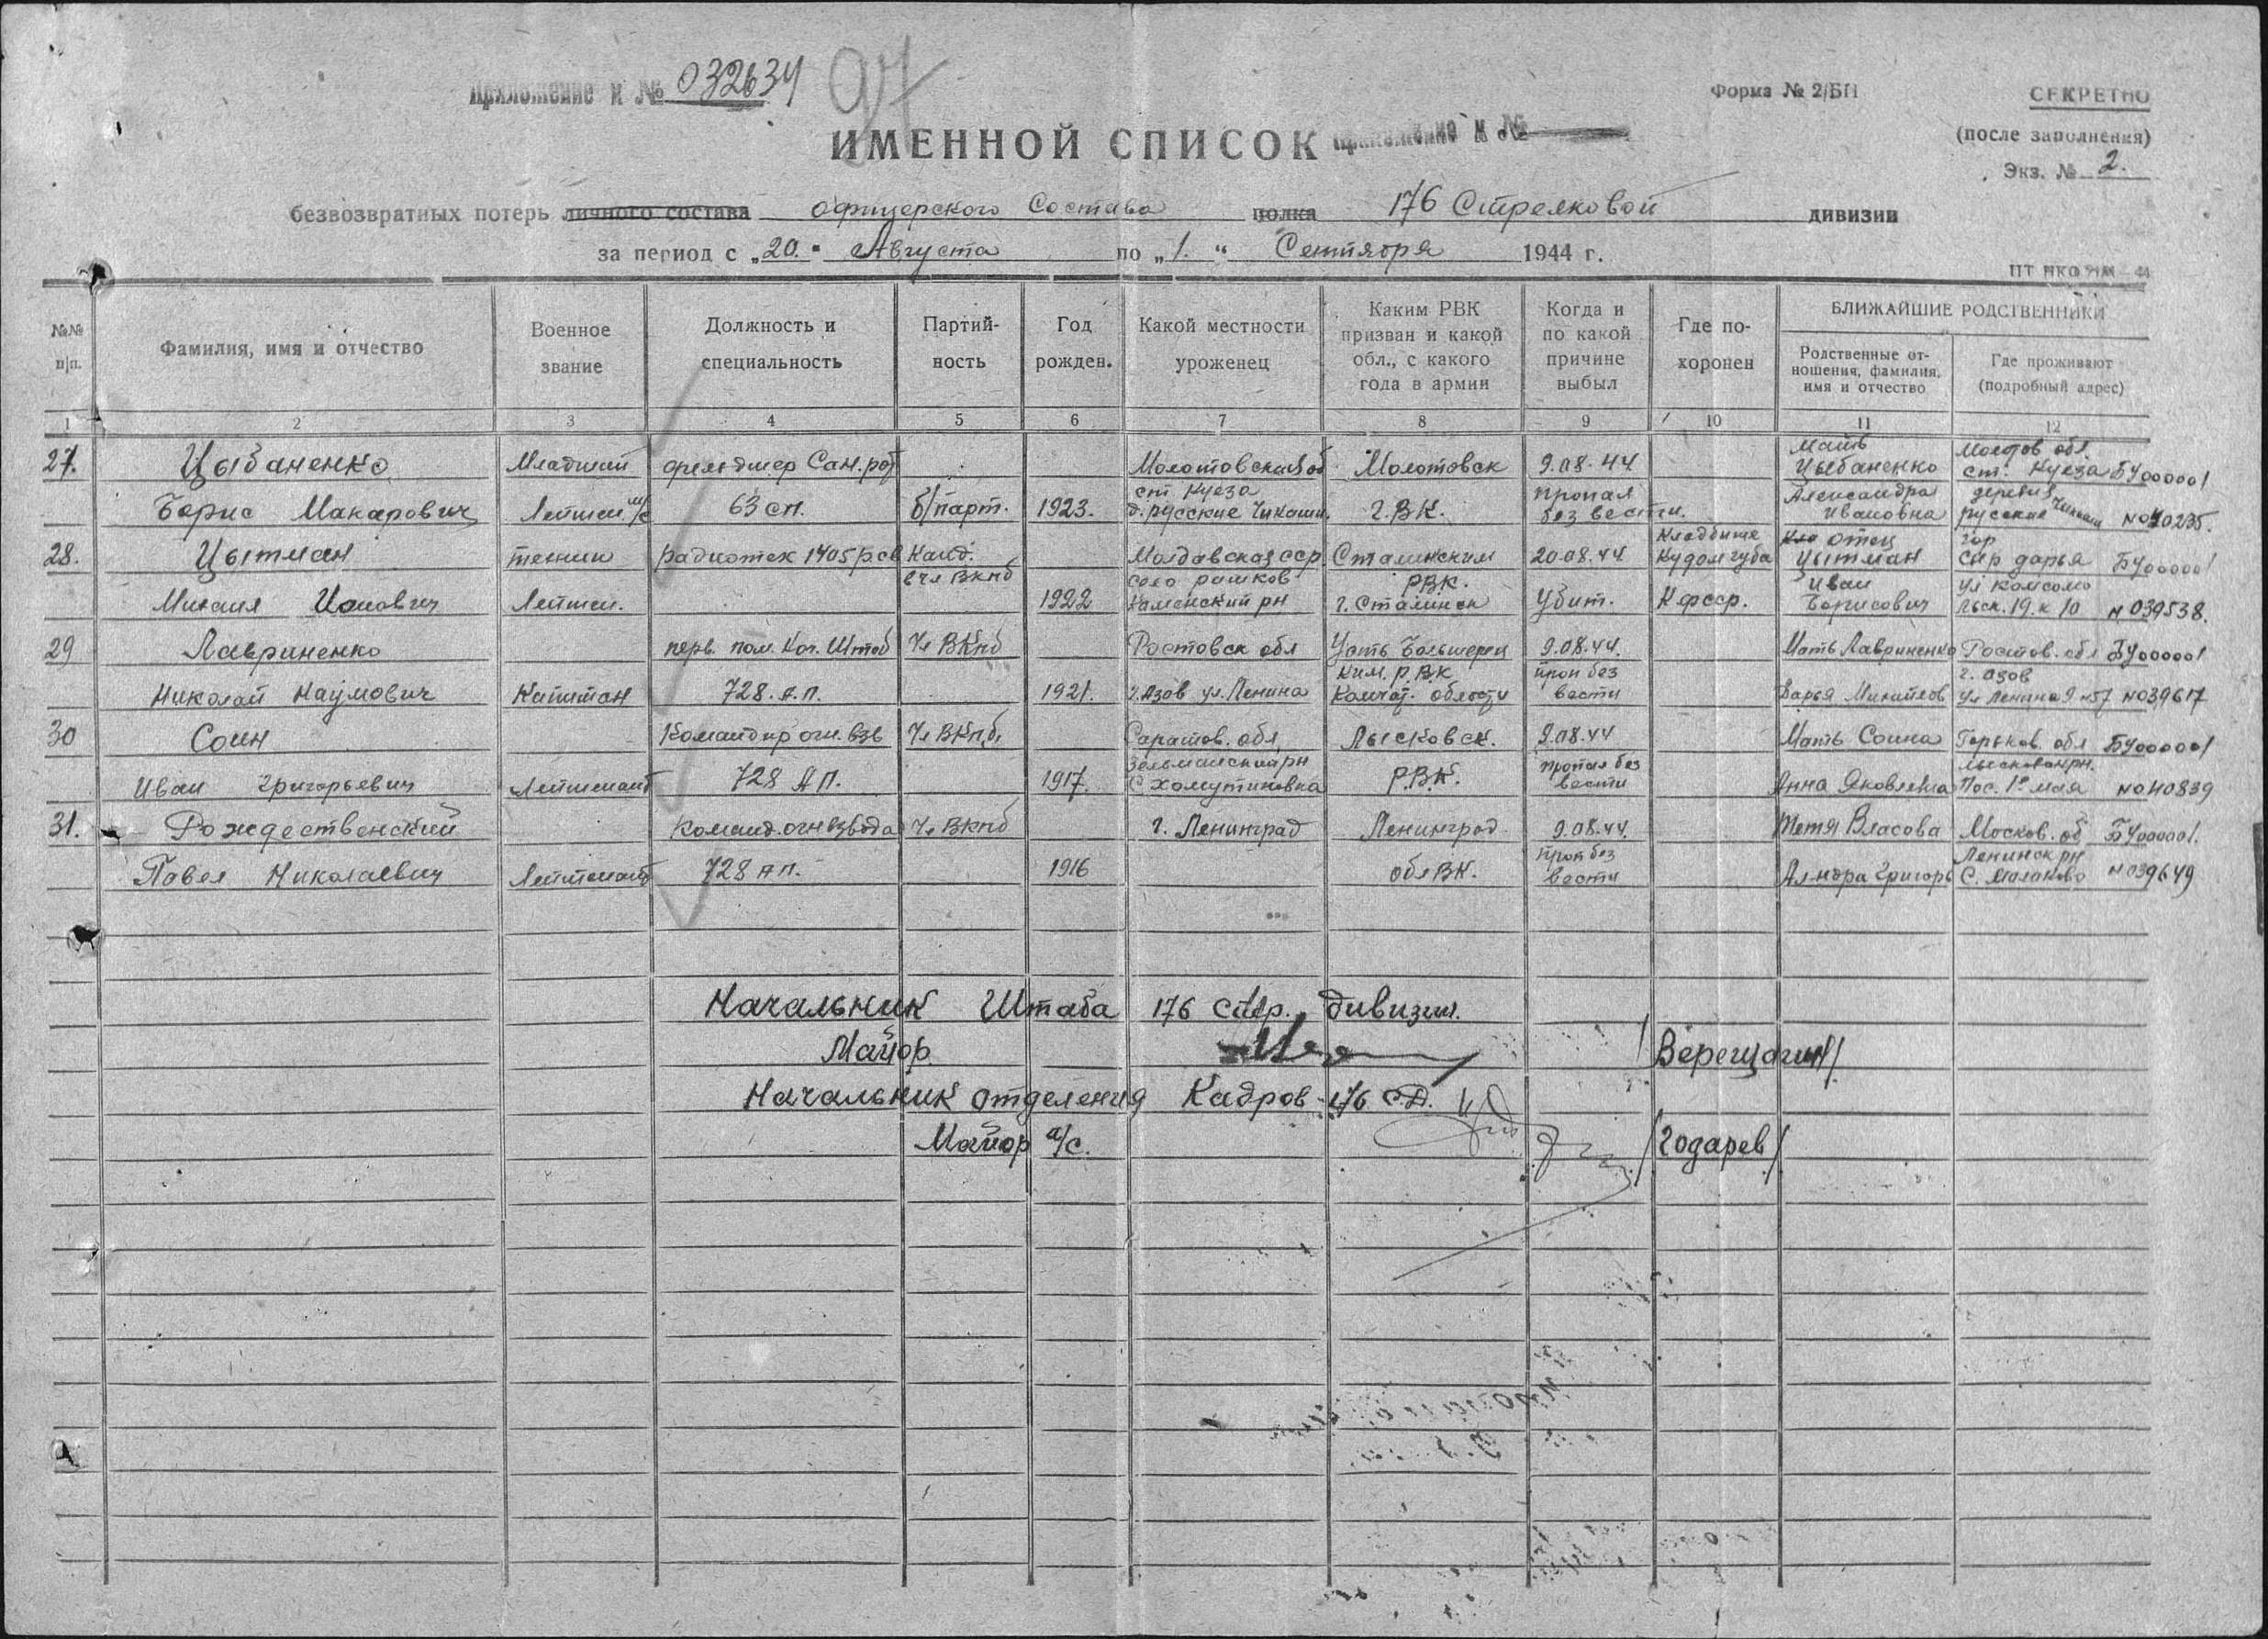 Приложение к № 032634
97
Форма № 2/БП
СЕКРЕТНО
(после заполнения)
Экз. № 2.
ИМЕННОЙ СПИСОК
Приложение к №
безвозвратных потерь личного состава офицерского Состава полка 176 Стрелковой дивизии
за период с „20." Августа по „1." Сентября 1944 г.
№№ п|п.
Фамилия, имя и отчество
Военное звание
Должность и специальность
Партий-ность
Год рожден.
Какой местности уроженец
Каким РВК призван и какой обл., с какого года в армии
Когда и по какой причине выбыл
Где по-хоронен
БЛИЖАЙШИЕ РОДСТВЕННИКИ
Родственные от-ношения, фамилия, имя и отчество
Где проживают (подробный адрес)
1 2 3 4 5 6 7 8 9 10 11 12
27. Цыбаненко Младший фельдшер Сан.рот Молотовская об Молотовск 9.08.44 Мать Цыбаненко Молотов обл. ст. Куеза БУ000001
Борис Макарович Лейтен м/с 63 сп. б/парт. 1923. ст Куеза д. русские Чикаши. Г.В.К. пропал без вести. Александра Ивановна деревня русские Чикаши №040235.
28. Цытман техник радиотех 1405 р.св Канд. в чл ВКПб Молдавская сср Сталинским 20.08.44 Кладбище Кудомгуба отец Цытман гор Сыр дарья БУ000001
Михаил Ионович Лейтен. 1922 село рашков Каменский рн РВК. г. Сталинск Убит. К фсср. Иван Борисович ул Комсомо льск. 19. к 10 №039538.
29 Лавриненко перв. пом. Нач. Штаб Чл ВКПб Ростовск обл Усть Большерец 9.08.44. Мать Лавриненко Ростов. обл БУ000001
Николай Наумович Капитан 728. а.п. 1921. г. Азов ул. Ленина ким. Р.В.К Камчат. области проп без вести Дарья Михайлов г. Азов ул Ленина 9 №57 №039617
30 Соин Командир огн. взв Чл ВКПб, Саратов. обл, Лысковск. 9.08.44 Мать Соина Горьков. обл БУ000001
Иван Григорьевич Лейтенант 728 АП. 1917. Зельманский рн С Хомутиновка Р.В.К. пропал без вести Анна Яковлевна Лысковск рн. Пос. 1е мая №040839
31. Рождественский Команд. огн взвода Чл ВКПб г. Ленинград Ленинград 9.08.44. Тетя Власова Москов. об БУ000001.
Павел Николаевич Лейтенант 728 ап. 1916 обл ВК. Проп без вести Ал-ндра Григорь Ленинск рн С. Малаково №039649
Начальник Штаба 176 стр. дивизии.
Майор /Верещагин/
Начальник отделения Кадров 176 С.Д.
Майор а/с. /Годарев/